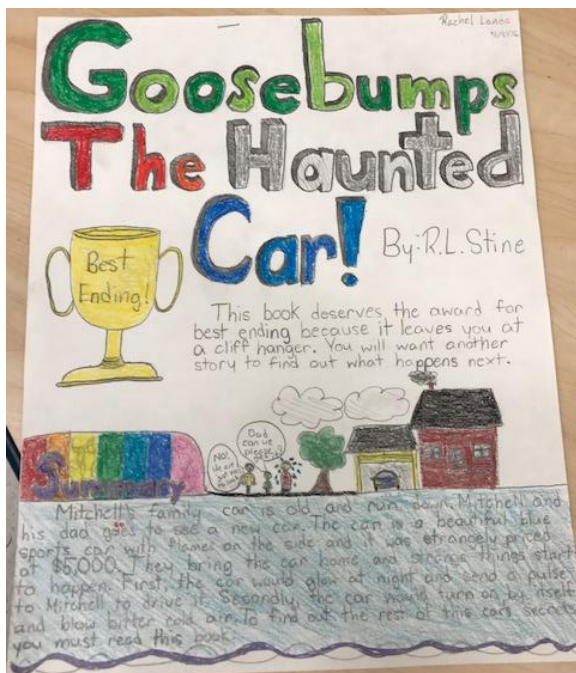 Rachel
Goosebumps
The Haunted
Car!
By: R.L. Stine
Best
Ending!
This book deserves the award for
best ending because it leaves you at
a cliff hanger. You will want another
story to find out what happens next.
NO!
Dad
can we
please
Summary
Mitchell's family car is old and run down. Mitchell and
his dad goes to see a new car. The car is a beautiful blue
sports car with flames on the side and it was strangely priced
at $5,000. They bring the car home and strange things start
to happen. First, the car would glow at night and send a pulse
to Mitchell to drive it. Secondly, the car would turn on by itself
and blow bitter cold air. To find out the rest of this cars secrets
you must read this book.